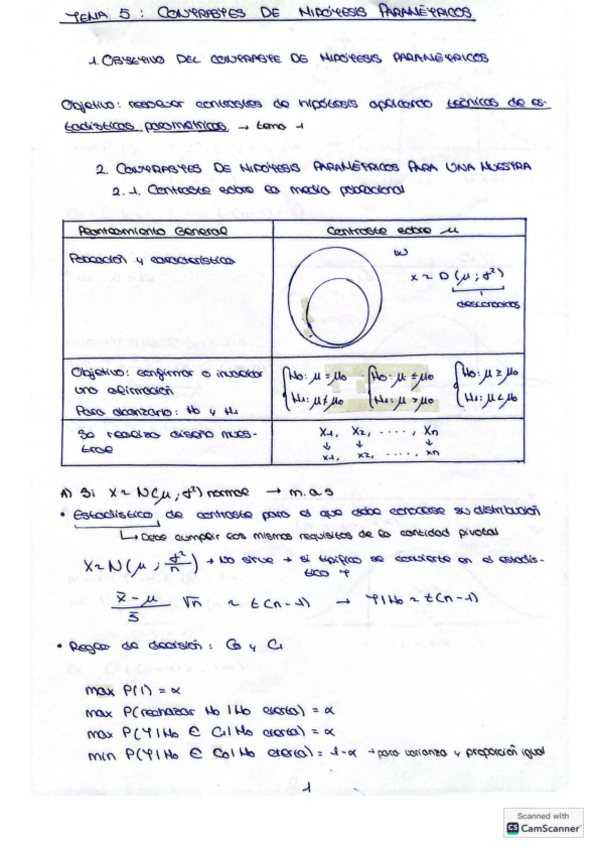 TEMA 5: CONTRASTES DE HIPÓTESIS PARAMÉTRICOS
1. OBJETIVO DEL CONTRASTE DE HIPÓTESIS PARAMÉTRICOS
Objetivo: resolver contrastes de hipótesis aplicando técnicas de es-
tadísticas paramétricas → tema 1
2. CONTRASTES DE HIPÓTESIS PARAMÉTRICOS PARA UNA MUESTRA
2.1. Contraste sobre la media poblacional
Planteamiento General
Contraste sobre μ
Población y característica
X ~ D(μ; σ²)
desconocidos
Objetivo: confirmar o invalidar
una afirmación
Para alcanzarlo: H0 y H1
H0: μ = μ0
H1: μ ≠ μ0
H0: μ ≤ μ0
H1: μ > μ0
H0: μ ≥ μ0
H1: μ < μ0
Se realiza diseño mues-
tral
X1, X2, ....., Xn
↓ ↓ ↓
x1, x2, ..... xn
A) Si X ~ N(μ; σ²) normal → m.a.s
• Estadístico de contraste para el que debe conocerse su distribución
↳ Debe cumplir los mismos requisitos de la cantidad pivotal
X ~ N(μ; σ²/n) → No sirve → si tipifico se convierte en el estadís-
tico φ
x̄ - μ / S √n ~ t(n-1) → φ|H0 ~ t(n-1)
• Reglas de decisión: C0 y C1
max P(I) = α
max P(rechazar H0 | H0 cierta) = α
max P(φ|H0 ∈ C1 | H0 cierta) = α
min P(φ|H0 ∈ C0 | H0 cierta) = 1-α → para varianza y proporción igual
1
Scanned with
CS CamScanner